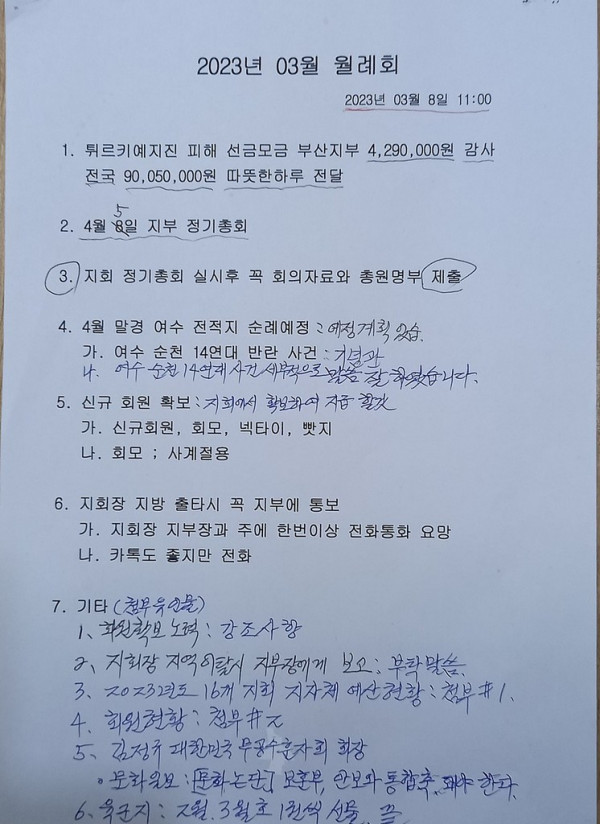 2023년 03월 월례회
2023년 03월 8일 11:00
1. 튀르키예지진 피해 선금모금 부산지부 4,290,000원 감사
전국 90,050,000원 따뜻한하루 전달
5
2. 4월 8일 지부 정기총회
3. 지회 정기총회 실시후 꼭 회의자료와 총원명부 제출
4. 4월 말경 여수 전적지 순례예정 : 예정계획 있음.
가. 여수 순천 14연대 반란 사건 : 기념관
나. 여수 순천 14연대사건 세부적으로 말씀 잘 하였습니다.
5. 신규 회원 확보 : 지회에서 확보하여 지급 할것
가. 신규회원, 회모, 넥타이, 뺏지
나. 회모 ; 사계절용
6. 지회장 지방 출타시 꼭 지부에 통보
가. 지회장 지부장과 주에 한번이상 전화통화 요망
나. 카톡도 좋지만 전화
7. 기타 (첨부유인물)
1、회원확보 노력 : 강조사항
2、지회장 지역이탈시 지부장에게 보고 : 부탁말씀.
3、2023년도 16개 지회 지자체 예산현황 : 첨부#1.
4、회원현황 : 첨부#2
5、김정규 대한민국 무공수훈자회 회장
• 문화일보 : [문화논단] 보훈부, 안보와 통합축, 돼야 한다.
6、육군지 : 2월, 3월호 1권씩 선물. 끝